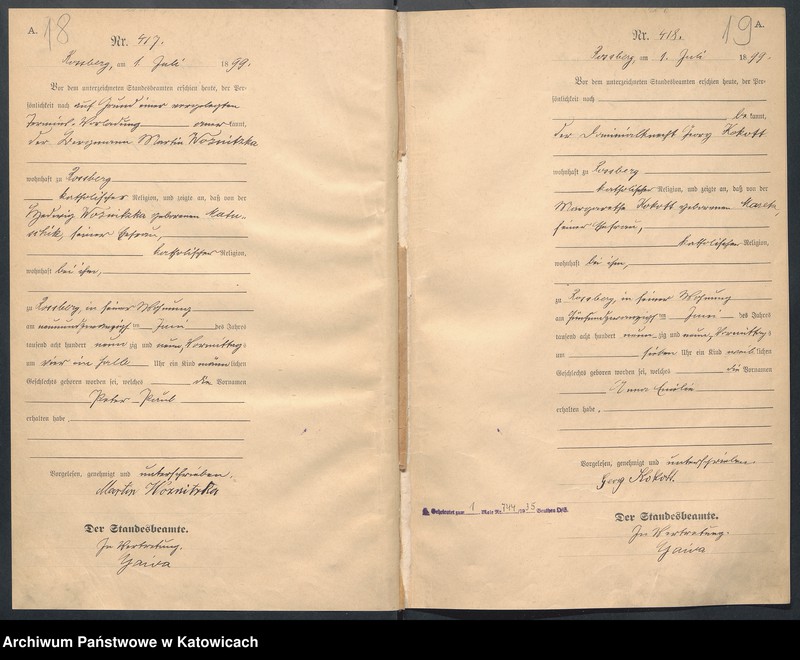 A.
18
Nr. 417.
Rossberg, am 1. Juli 1899.
Vor dem unterzeichneten Standesbeamten erschien heute, der Per-
sönlichkeit nach auf Grund einer vorgelegten
Termins-Vorladung anerkannt,
der Bergmann Martin Wosnitzka
wohnhaft zu Rossberg
katholischer Religion, und zeigte an, daß von der
Hedwig Wosnitzka geborenen
seiner Ehefrau,
katholischer Religion,
wohnhaft bei ihm,
zu Rossberg, in seiner Wohnung
am neunundzwanzigsten Juni des Jahres
tausend acht hundert neunzig und neun, Vormittags
um vier ein halb Uhr ein Kind männlichen
Geschlechts geboren worden sei, welches die Vornamen
Peter Paul
erhalten habe
Vorgelesen, genehmigt und unterschrieben.
Martin Wóznitzka
Der Standesbeamte.
In Vertretung.
Gaida
19
A.
Nr. 418.
Rossberg, am 1. Juli 1899.
Vor dem unterzeichneten Standesbeamten erschien heute, der Per-
sönlichkeit nach
bekannt,
der Dominialknecht Georg Kokott
wohnhaft zu Rossberg
katholischer Religion, und zeigte an, daß von der
Margarethe Kokott geborenen
seiner Ehefrau,
katholischer Religion,
wohnhaft bei ihm,
zu Rossberg, in seiner Wohnung
am fünfundzwanzigsten Juni des Jahres
tausend acht hundert neunzig und neun, Vormittags
um sieben Uhr ein Kind weiblichen
Geschlechts geboren worden sei, welches die Vornamen
Anna Emilie
erhalten habe.
Vorgelesen, genehmigt und unterschrieben.
Georg Kokott.
Der Standesbeamte.
In Vertretung.
Gaida
Geheiratet zum 1 Male Nr. 744
Archiwum Państwowe w Katowicach